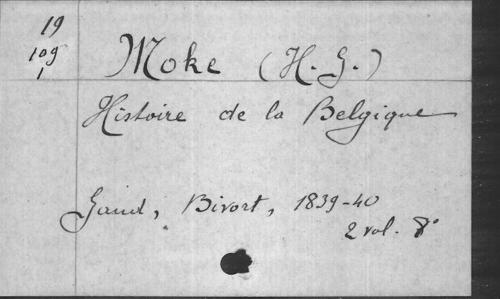 19
109
1
Moke (H. G.)
Histoire de la Belgique
Gand, Bivort, 1839-40
2 vol. 8°